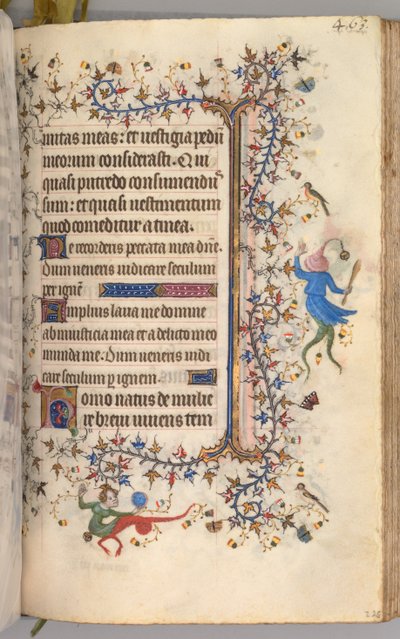 463
mitas meas: et vestigia pedū
meorum considerasti. Qui
quasi putredo consumendus
sum: et quasi vestimentum
quod comeditur a tinea.
Ne recorderis peccata mea dñe.
Dum veneris iudicare seculum
per ignē.
Amplius lava me domine
ab iniusticia mea et a delicto meo
munda me. Dum veneris iudi
care seculum p ignem.
Homo natus de mulie
re brevi vivens tem